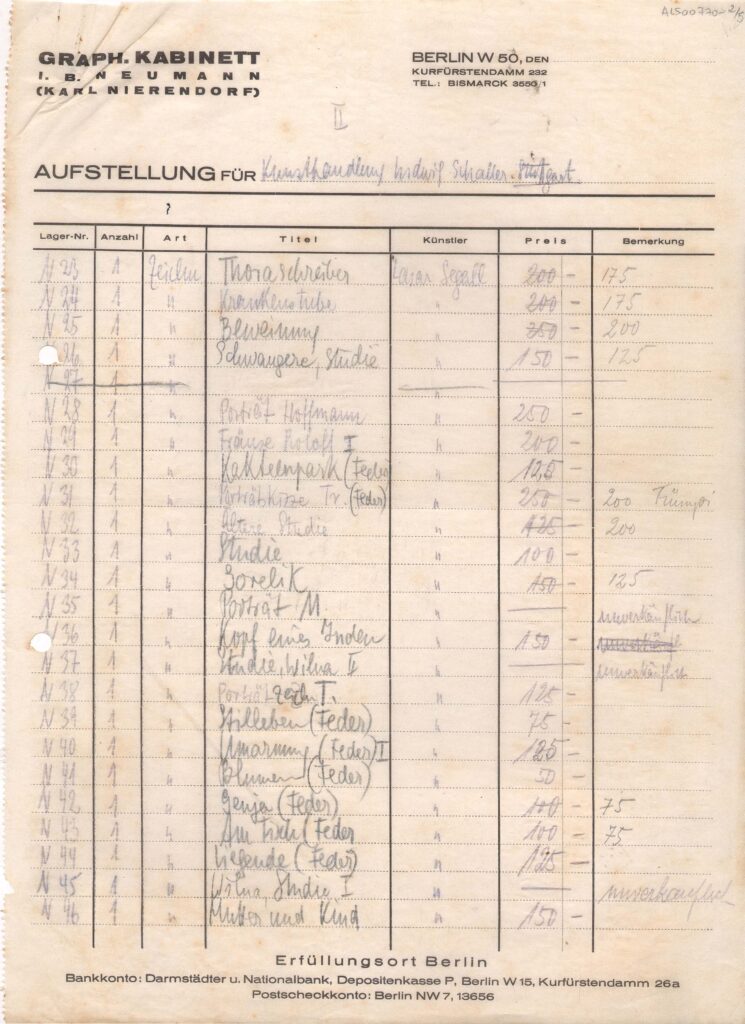 ALS00770-2/3
GRAPH. KABINETT
I. B. NEUMANN
(KARL NIERENDORF)
BERLIN W 50, DEN
KURFÜRSTENDAMM 232
TEL.: BISMARCK 3550/1
II
AUFSTELLUNG FÜR Kunsthandlung Ludwig Schaller. Stuttgart.
?
Lager-Nr. Anzahl Art Titel Künstler Preis Bemerkung
N 23 1 Zeichn Thoraschreiber Lasar Segall 200 - 175
N 24 1 " Krankenstube " 200 - 175
N 25 1 " Beweinung " 250 - 200
26 1 " Schwangere, Studie " 150 - 125
N 27 1 " "
N 28 1 " Porträt Hoffmann " 250 -
N 29 1 " Fränze Roloff I " 200 -
N 30 1 " Kakteenpark (Feder) " 125 -
N 31 1 " Porträtskizze Tr. (Feder) " 250 - 200
N 32 1 " Ältere Studie " 125 - 200
N 33 1 " Studie " 100 -
N 34 1 " Gorelik " 150 - 125
N 35 1 " Porträt M. " — unverkäuflich
N 36 1 " Kopf eines Juden " 150 - unverkäufl
N 37 1 " Studie, Wilna II " — unverkäuflich
N 38 1 " Porträt T. " 125 -
N 39 1 " Stilleben (Feder) " 75 -
N 40 1 " Umarmung (Feder) I " 125 -
N 41 1 " Blumen (Feder) " 50 -
N 42 1 " Genja (Feder) " 100 - 75
N 43 1 " Am Tisch (Feder " 100 - 75
N 44 1 " Liegende (Feder) " 125 -
N 45 1 " Wilna, Studie I " — unverkäuflich
N 46 1 " Mutter und Kind " 150 -
Erfüllungsort Berlin
Bankkonto: Darmstädter u. Nationalbank, Depositenkasse P, Berlin W 15, Kurfürstendamm 26a
Postscheckkonto: Berlin NW 7, 13656